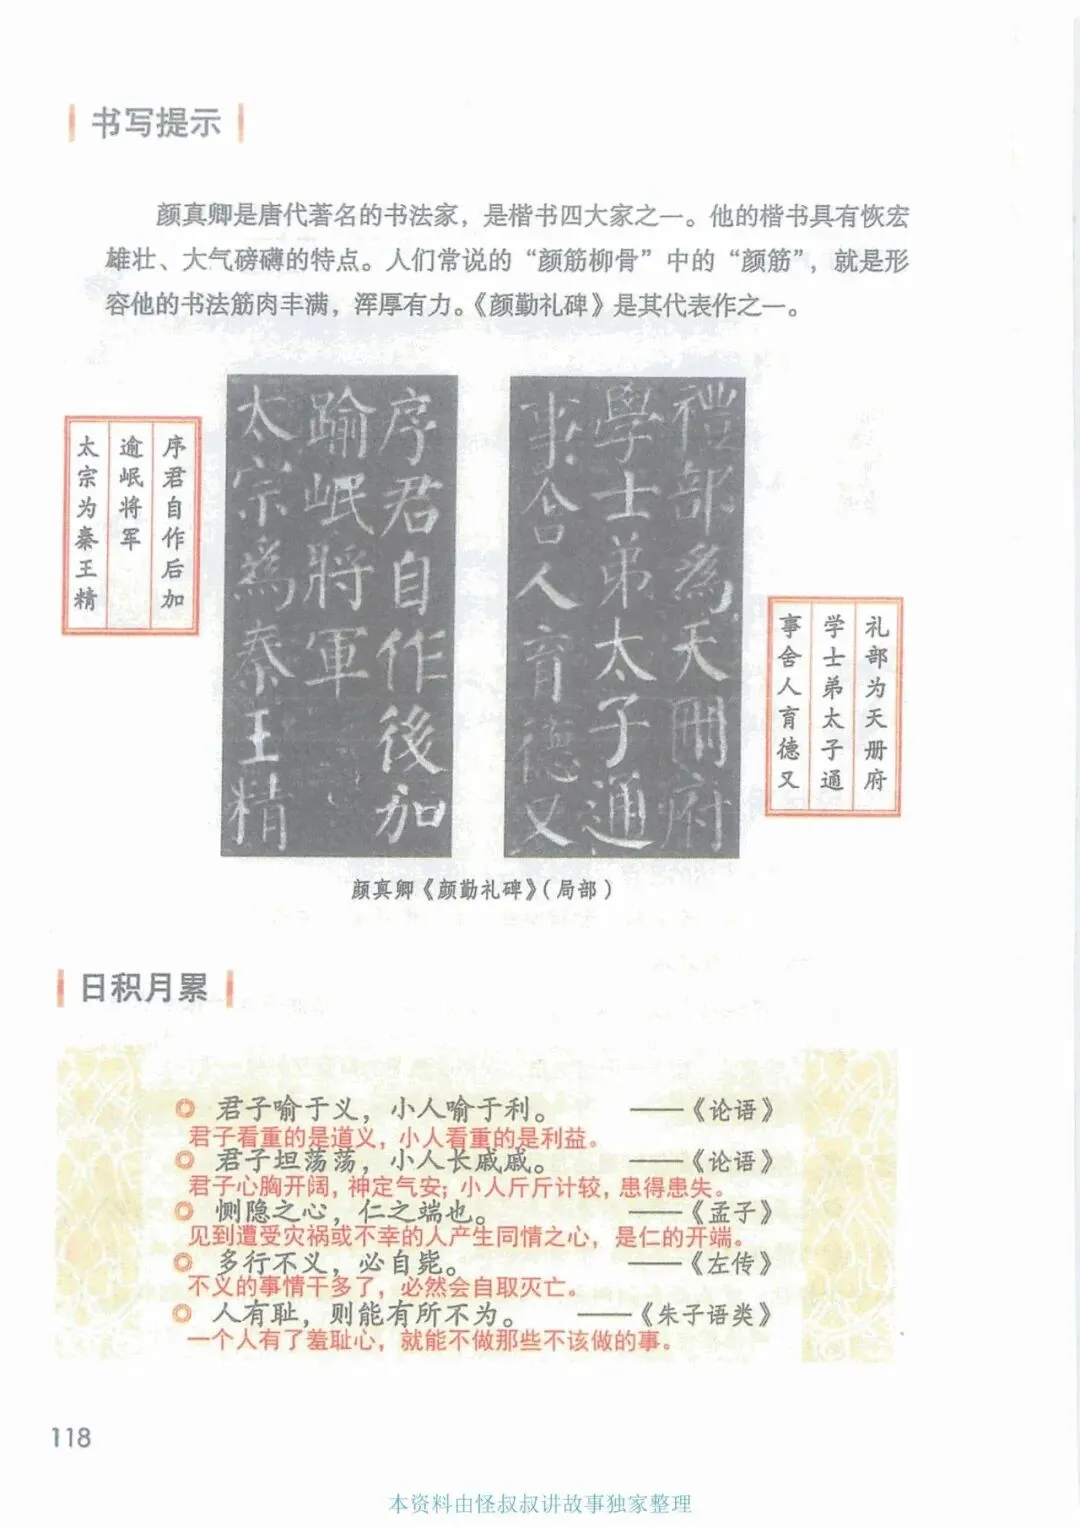 书写提示
颜真卿是唐代著名的书法家，是楷书四大家之一。他的楷书具有恢宏
雄壮、大气磅礴的特点。人们常说的“颜筋柳骨”中的“颜筋”，就是形
容他的书法筋肉丰满，浑厚有力。《颜勤礼碑》是其代表作之一。
序君自作后加
逾岷将军
太宗为秦王精
序君自作後加
踰岷將軍
太宗為秦王精
禮部為天冊府
學士弟太子通
事舍人育德又
礼部为天册府
学士弟太子通
事舍人育德又
颜真卿《颜勤礼碑》（局部）
日积月累
君子喻于义，小人喻于利。 ——《论语》
君子看重的是道义，小人看重的是利益。
君子坦荡荡，小人长戚戚。 ——《论语》
君子心胸开阔，神定气安；小人斤斤计较，患得患失。
恻隐之心，仁之端也。 ——《孟子》
见到遭受灾祸或不幸的人产生同情之心，是仁的开端。
多行不义，必自毙。 ——《左传》
不义的事情干多了，必然会自取灭亡。
人有耻，则能有所不为。 ——《朱子语类》
一个人有了羞耻心，就能不做那些不该做的事。
118
本资料由怪叔叔讲故事独家整理